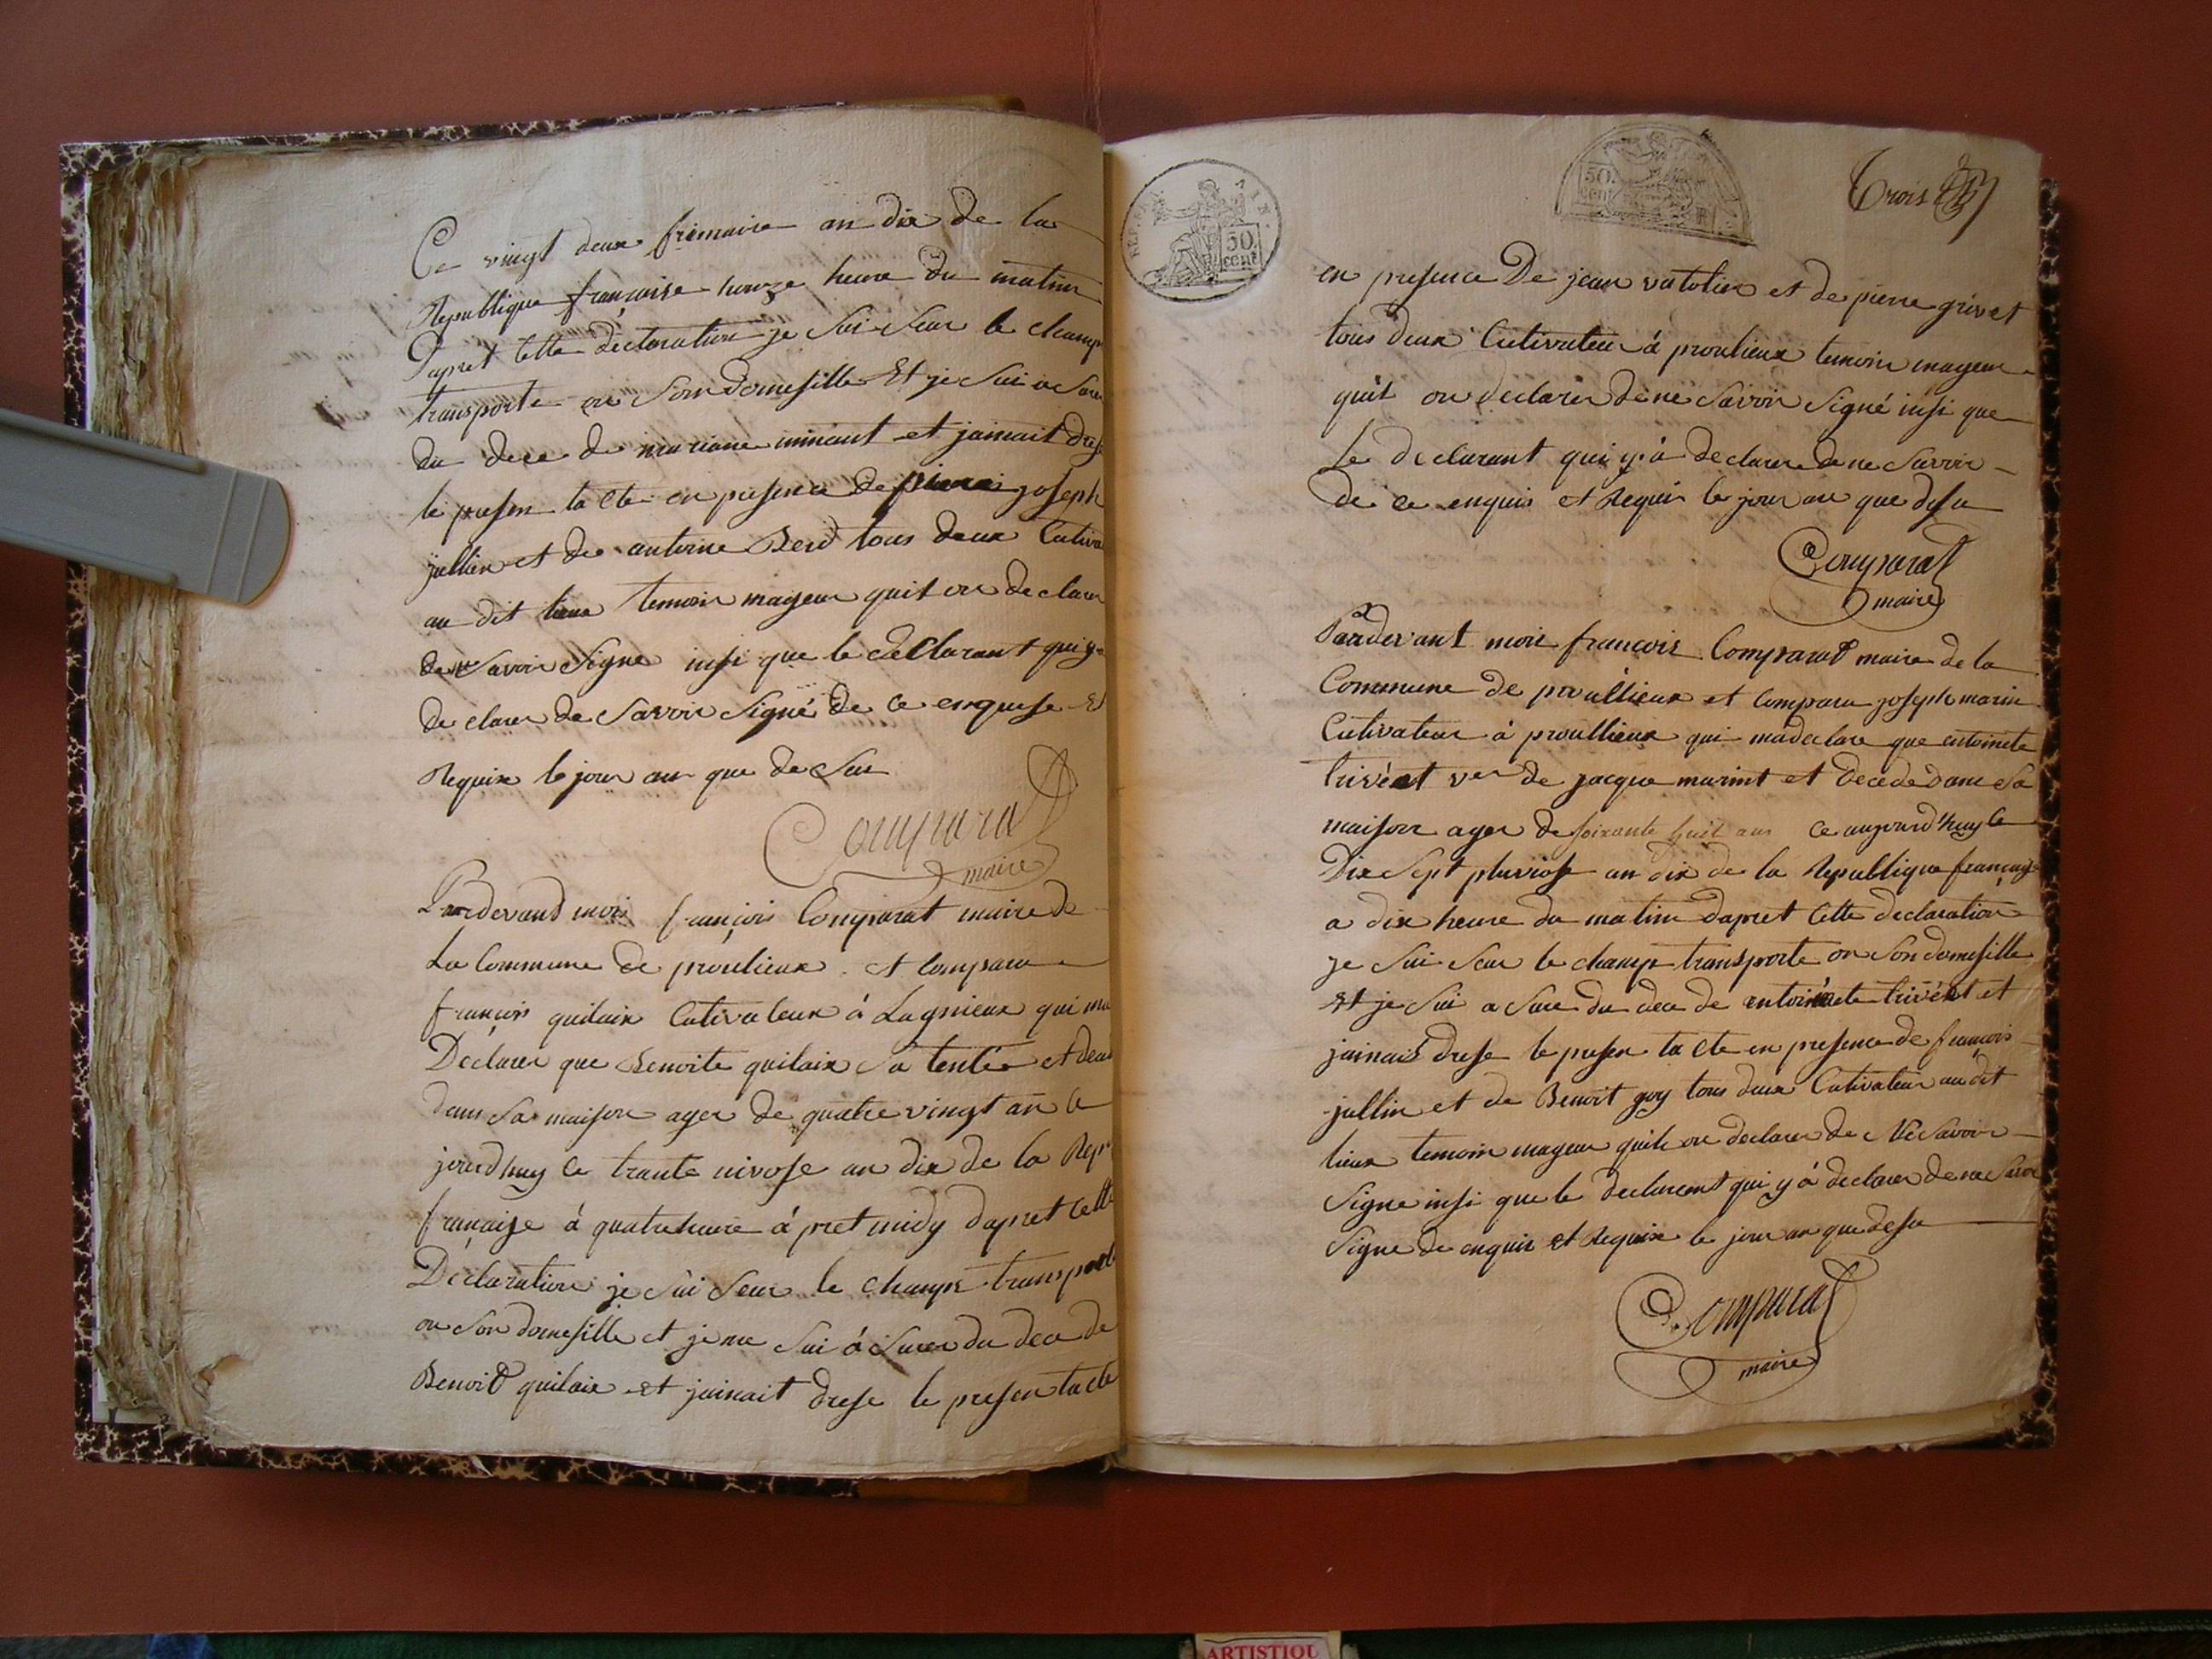 Ce vingt deux frimaire an dix de la
Republique françaisse honze heure du matin
Dapret cette déclaration je sui seur le champ
transporte en son domesille Et je sui a sure
du dece de mariane minant et jainait dres
le presen ta cte en presence de pierre joseph
jullien et de antoine Berd tous deux Cutiva
au dit lieux temoin mageur quit on declare
de ne savoir signe insi que le declarant qui y a
de clarer de savoir signé de ce enquese Et
Requix le jour an que de sus
Comparat
maire
Pardevand mois françois Comparat maire de
La Commune de proulieux et Comparu
françois quilaix Cutivateur á Lagnieux qui ma
Déclarer que Benoite quilaix sa tentée et dece
dans sa maison ager de quatre vingt an ce
jourdhuy ce trante nivose an dix de la Rep
françaize á quatre heure á pret midy dapret cette
Déclaration je sui seur le champ transporte
on son domesille et je me sui á surer du dece de
Benoit quilaix et jainait drese le presen tacte
REP. FRA
50.
cent
50.
cent
Trois
en presence De jean vatolier et de pierre grivet
tous deux Cutivateur á proulieux temoin mageur
quit on declarer de ne savoir signé insi que
Le declarant qui y á declarer de ne savoir
de ce enquis et Requis le jour an que desu
Comparat
maire
Pardevant mois françois Comparat maire de la
Commune de proullieux et Comparu joseph marin
Cutivateur á proullieux qui ma declare que entoinete
trivént ver de jacque marint et decede dans sa
maison ager de soixante huit ans ce aujourd'huy le
Dix sept pluviose an dix de la Republique françaize
a dix heure du matin dapret Cette declaration
je sui seur le champ transporte on son domesille
Et je sui a sure du dece de entoinete trivént et
jainais drese le presen ta cte en presence de françois
jullin et de Benoit goy tous deux Cutivateur au dit
lieux temoin mageur quils on declarer de Ne savoir
signe insi que le declarent qui y á declarer de ne savoi
signe de enquis et Requix le jour an que desu
Comparat
maire
ARTISTIQU